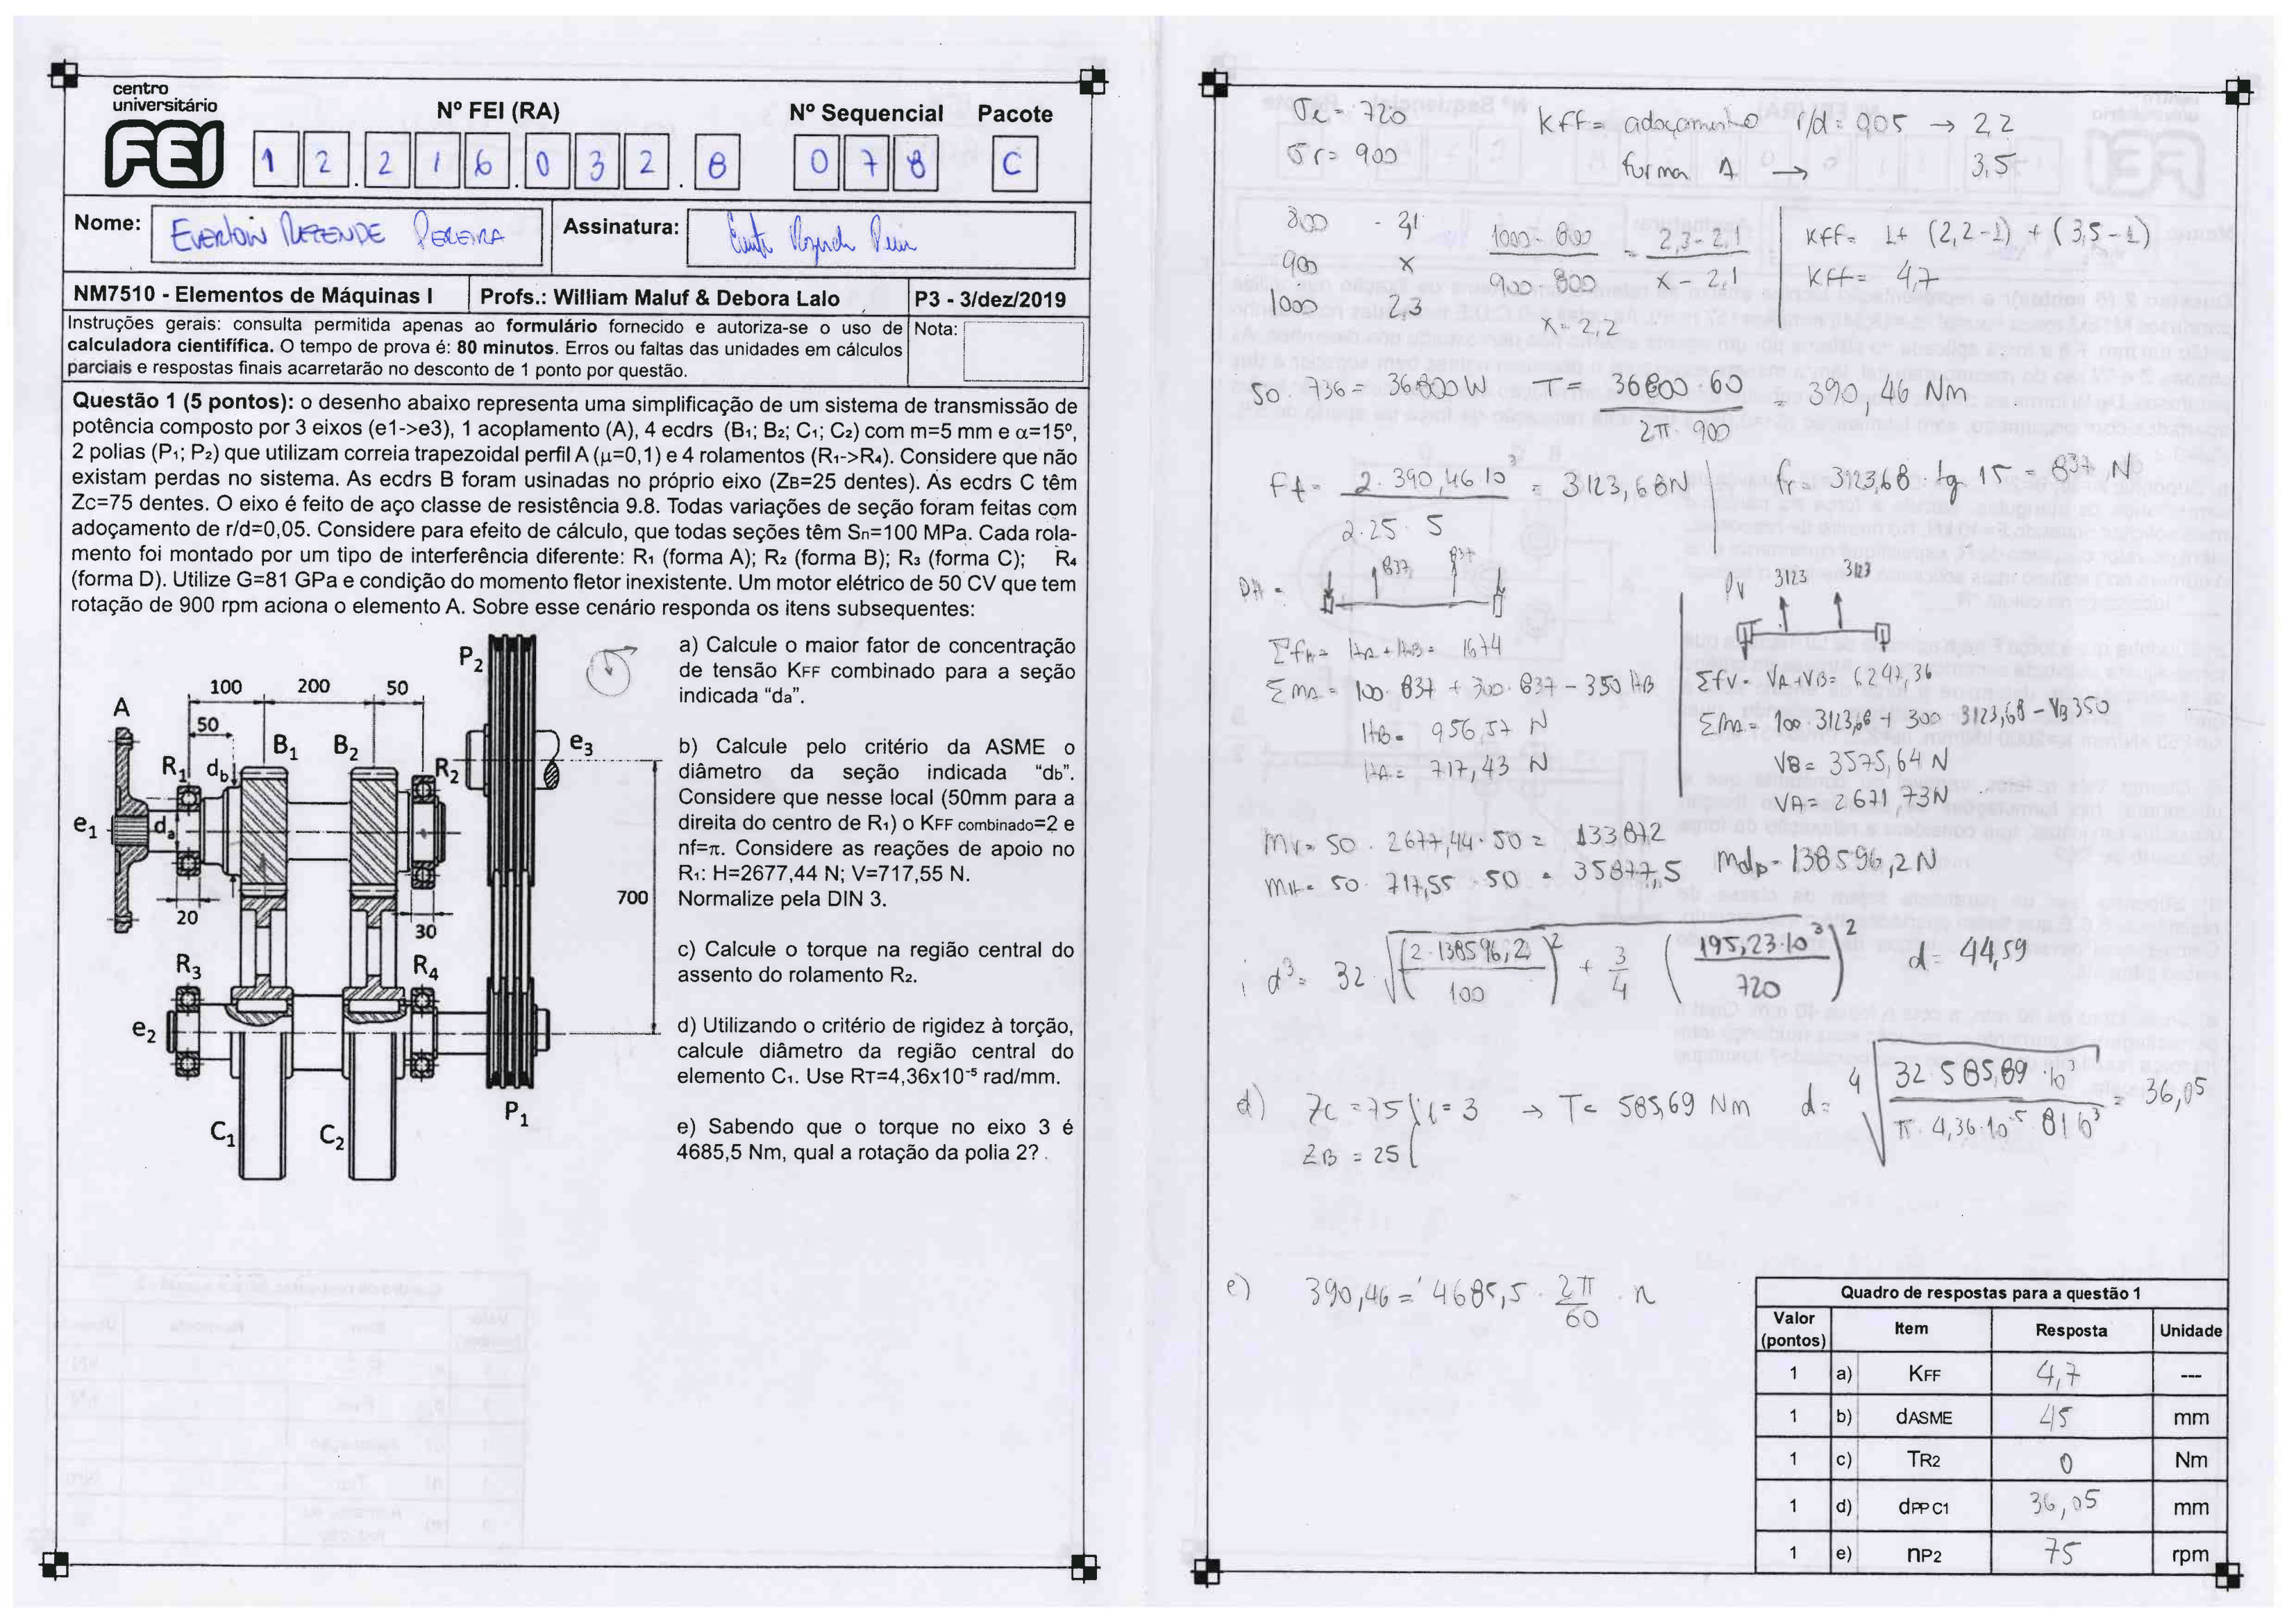 centro
universitário
FEI
Nº FEI (RA)
Nº Sequencial
Pacote
1 2 . 2 1 6 . 0 3 2 . 8
0 7 8
C
Nome: EVERTON REZENDE PEREIRA
Assinatura:
NM7510 - Elementos de Máquinas I
Profs.: William Maluf & Debora Lalo
P3 - 3/dez/2019
Instruções gerais: consulta permitida apenas ao formulário fornecido e autoriza-se o uso de
calculadora cientifífica. O tempo de prova é: 80 minutos. Erros ou faltas das unidades em cálculos
parciais e respostas finais acarretarão no desconto de 1 ponto por questão.
Nota:
Questão 1 (5 pontos): o desenho abaixo representa uma simplificação de um sistema de transmissão de
potência composto por 3 eixos (e1->e3), 1 acoplamento (A), 4 ecdrs (B₁; B₂; C₁; C₂) com m=5 mm e α=15º,
2 polias (P₁; P₂) que utilizam correia trapezoidal perfil A (μ=0,1) e 4 rolamentos (R₁->R₄). Considere que não
existam perdas no sistema. As ecdrs B foram usinadas no próprio eixo (ZB=25 dentes). As ecdrs C têm
Zc=75 dentes. O eixo é feito de aço classe de resistência 9.8. Todas variações de seção foram feitas com
adoçamento de r/d=0,05. Considere para efeito de cálculo, que todas seções têm Sn=100 MPa. Cada rola-
mento foi montado por um tipo de interferência diferente: R₁ (forma A); R₂ (forma B); R₃ (forma C); R₄
(forma D). Utilize G=81 GPa e condição do momento fletor inexistente. Um motor elétrico de 50 CV que tem
rotação de 900 rpm aciona o elemento A. Sobre esse cenário responda os itens subsequentes:
P₂
100 200 50
A
50
B₁ B₂
e₃
R₁ d_b
R₂
e₁
d_a
20
30
700
R₃
R₄
e₂
P₁
C₁
C₂
a) Calcule o maior fator de concentração
de tensão KFF combinado para a seção
indicada “da”.
b) Calcule pelo critério da ASME o
diâmetro da seção indicada “db”.
Considere que nesse local (50mm para a
direita do centro de R₁) o KFF combinado=2 e
nf=π. Considere as reações de apoio no
R₁: H=2677,44 N; V=717,55 N.
Normalize pela DIN 3.
c) Calcule o torque na região central do
assento do rolamento R₂.
d) Utilizando o critério de rigidez à torção,
calcule diâmetro da região central do
elemento C₁. Use RT=4,36x10⁻⁵ rad/mm.
e) Sabendo que o torque no eixo 3 é
4685,5 Nm, qual a rotação da polia 2?
σe = 720
σr = 900
Kff = adoçamento r/d = 0,05 → 2,2
forma A → 3,5
800 - 2,1
900 x
1000 2,3
1000 - 800 / 900 - 800 = 2,3 - 2,1 / x - 2,1
x = 2,2
Kff = 1 + (2,2-1) + (3,5-1)
Kff = 4,7
50 . 736 = 36.800 W T = 36800 . 60 / 2π . 900 = 390,46 Nm
Ft = 2 . 390,46 10³ / 2.25 . 5 = 3123,68N
fr = 3123,68 . tg 15 = 837 N
PH =
837 837
PV
3123 3123
ΣfH = HA + HB = 1674
ΣMA = 100 . 837 + 300 . 837 - 350 HB
HB = 956,57 N
HA = 717,43 N
ΣfV = VA + VB = 6247,36
ΣMA = 100 . 3123,68 + 300 3123,68 - VB 350
VB = 3575,64 N
VA = 2671,73N
MV = 50 . 2677,44 . 50 = 133872
MH = 50 . 717,55 . 50 = 35877,5
Mdb = 138596,2 N
d³ = 32 √(2 . 138596,2 / 100)² + 3/4 (195,23.10³ / 720)² d = 44,59
d) Zc = 75
ZB = 25
i = 3 → T = 585,69 Nm
d = ⁴√32 . 585,69 10³ / π . 4,36.10⁻⁵ . 81 10³ = 36,05
e) 390,46 = 4685,5 . 2π/60 . n
Quadro de respostas para a questão 1
Valor (pontos) Item Resposta Unidade
1 a) KFF 4,7 ---
1 b) dASME 45 mm
1 c) TR2 0 Nm
1 d) dPP C1 36,05 mm
1 e) nP2 75 rpm